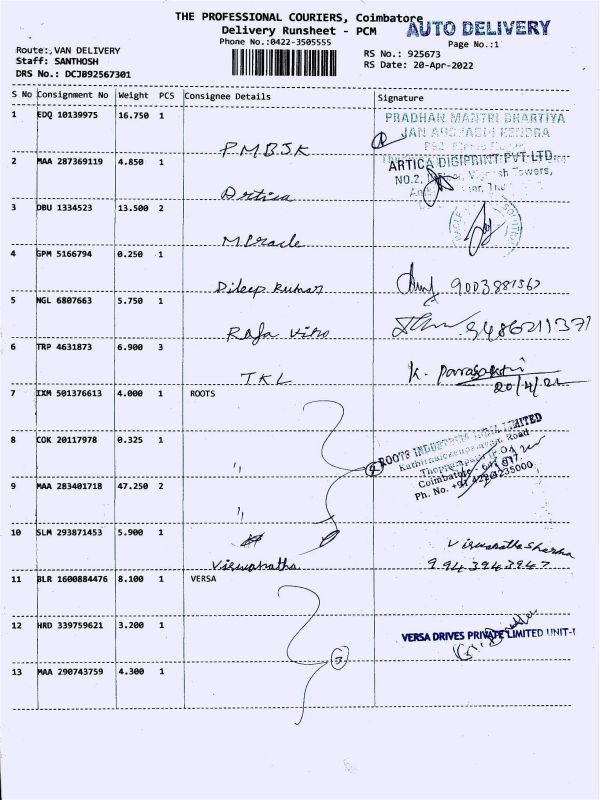 THE PROFESSIONAL COURIERS, Coimbatore
AUTO DELIVERY
Delivery Runsheet - PCM
Phone No.:0422-3505555
Page No.:1
Route:,VAN DELIVERY
Staff: SANTHOSH
DRS No.: DCJB92567301
RS No.: 925673
RS Date: 20-Apr-2022
S No Consignment No Weight PCS Consignee Details Signature
1 EDQ 10139975 16.750 1 P.M.B.J.K
PRADHAN MANTRI BHARTIYA
JAN AUSHADHI KENDRA
2 MAA 287369119 4.850 1 Artica
ARTICA DIGIPRINT PVT LTD
NO.2, Towers,
3 DBU 1334523 13.500 2 Miracle
4 GPM 5166794 0.250 1 Dileep Kumar
5 NGL 6807663 5.750 1 Raja
6 TRP 4631873 6.900 3 TKL
K. Parasakthi
20/4/22
7 IXM 501376613 4.000 1 ROOTS
8 COK 20117978 0.325 1 "
4
ROOTS INDUSTRIES INDIA LIMITED
Road
Thoppampatti (P.O)
Coimbatore - 641 017.
Ph. No. +91 4223235000
9 MAA 283401718 47.250 2 "
10 SLM 293871453 5.900 1 Viswanatha
9943943947
11 BLR 1600884476 8.100 1 VERSA
12 HRD 339759621 3.200 1
VERSA DRIVES PRIVATE LIMITED UNIT-I
3
13 MAA 290743759 4.300 1